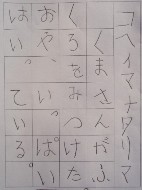 コヘイマナタリマ
くまさんがふ
くろをみつけた
おや、いっぱい
はいっている。